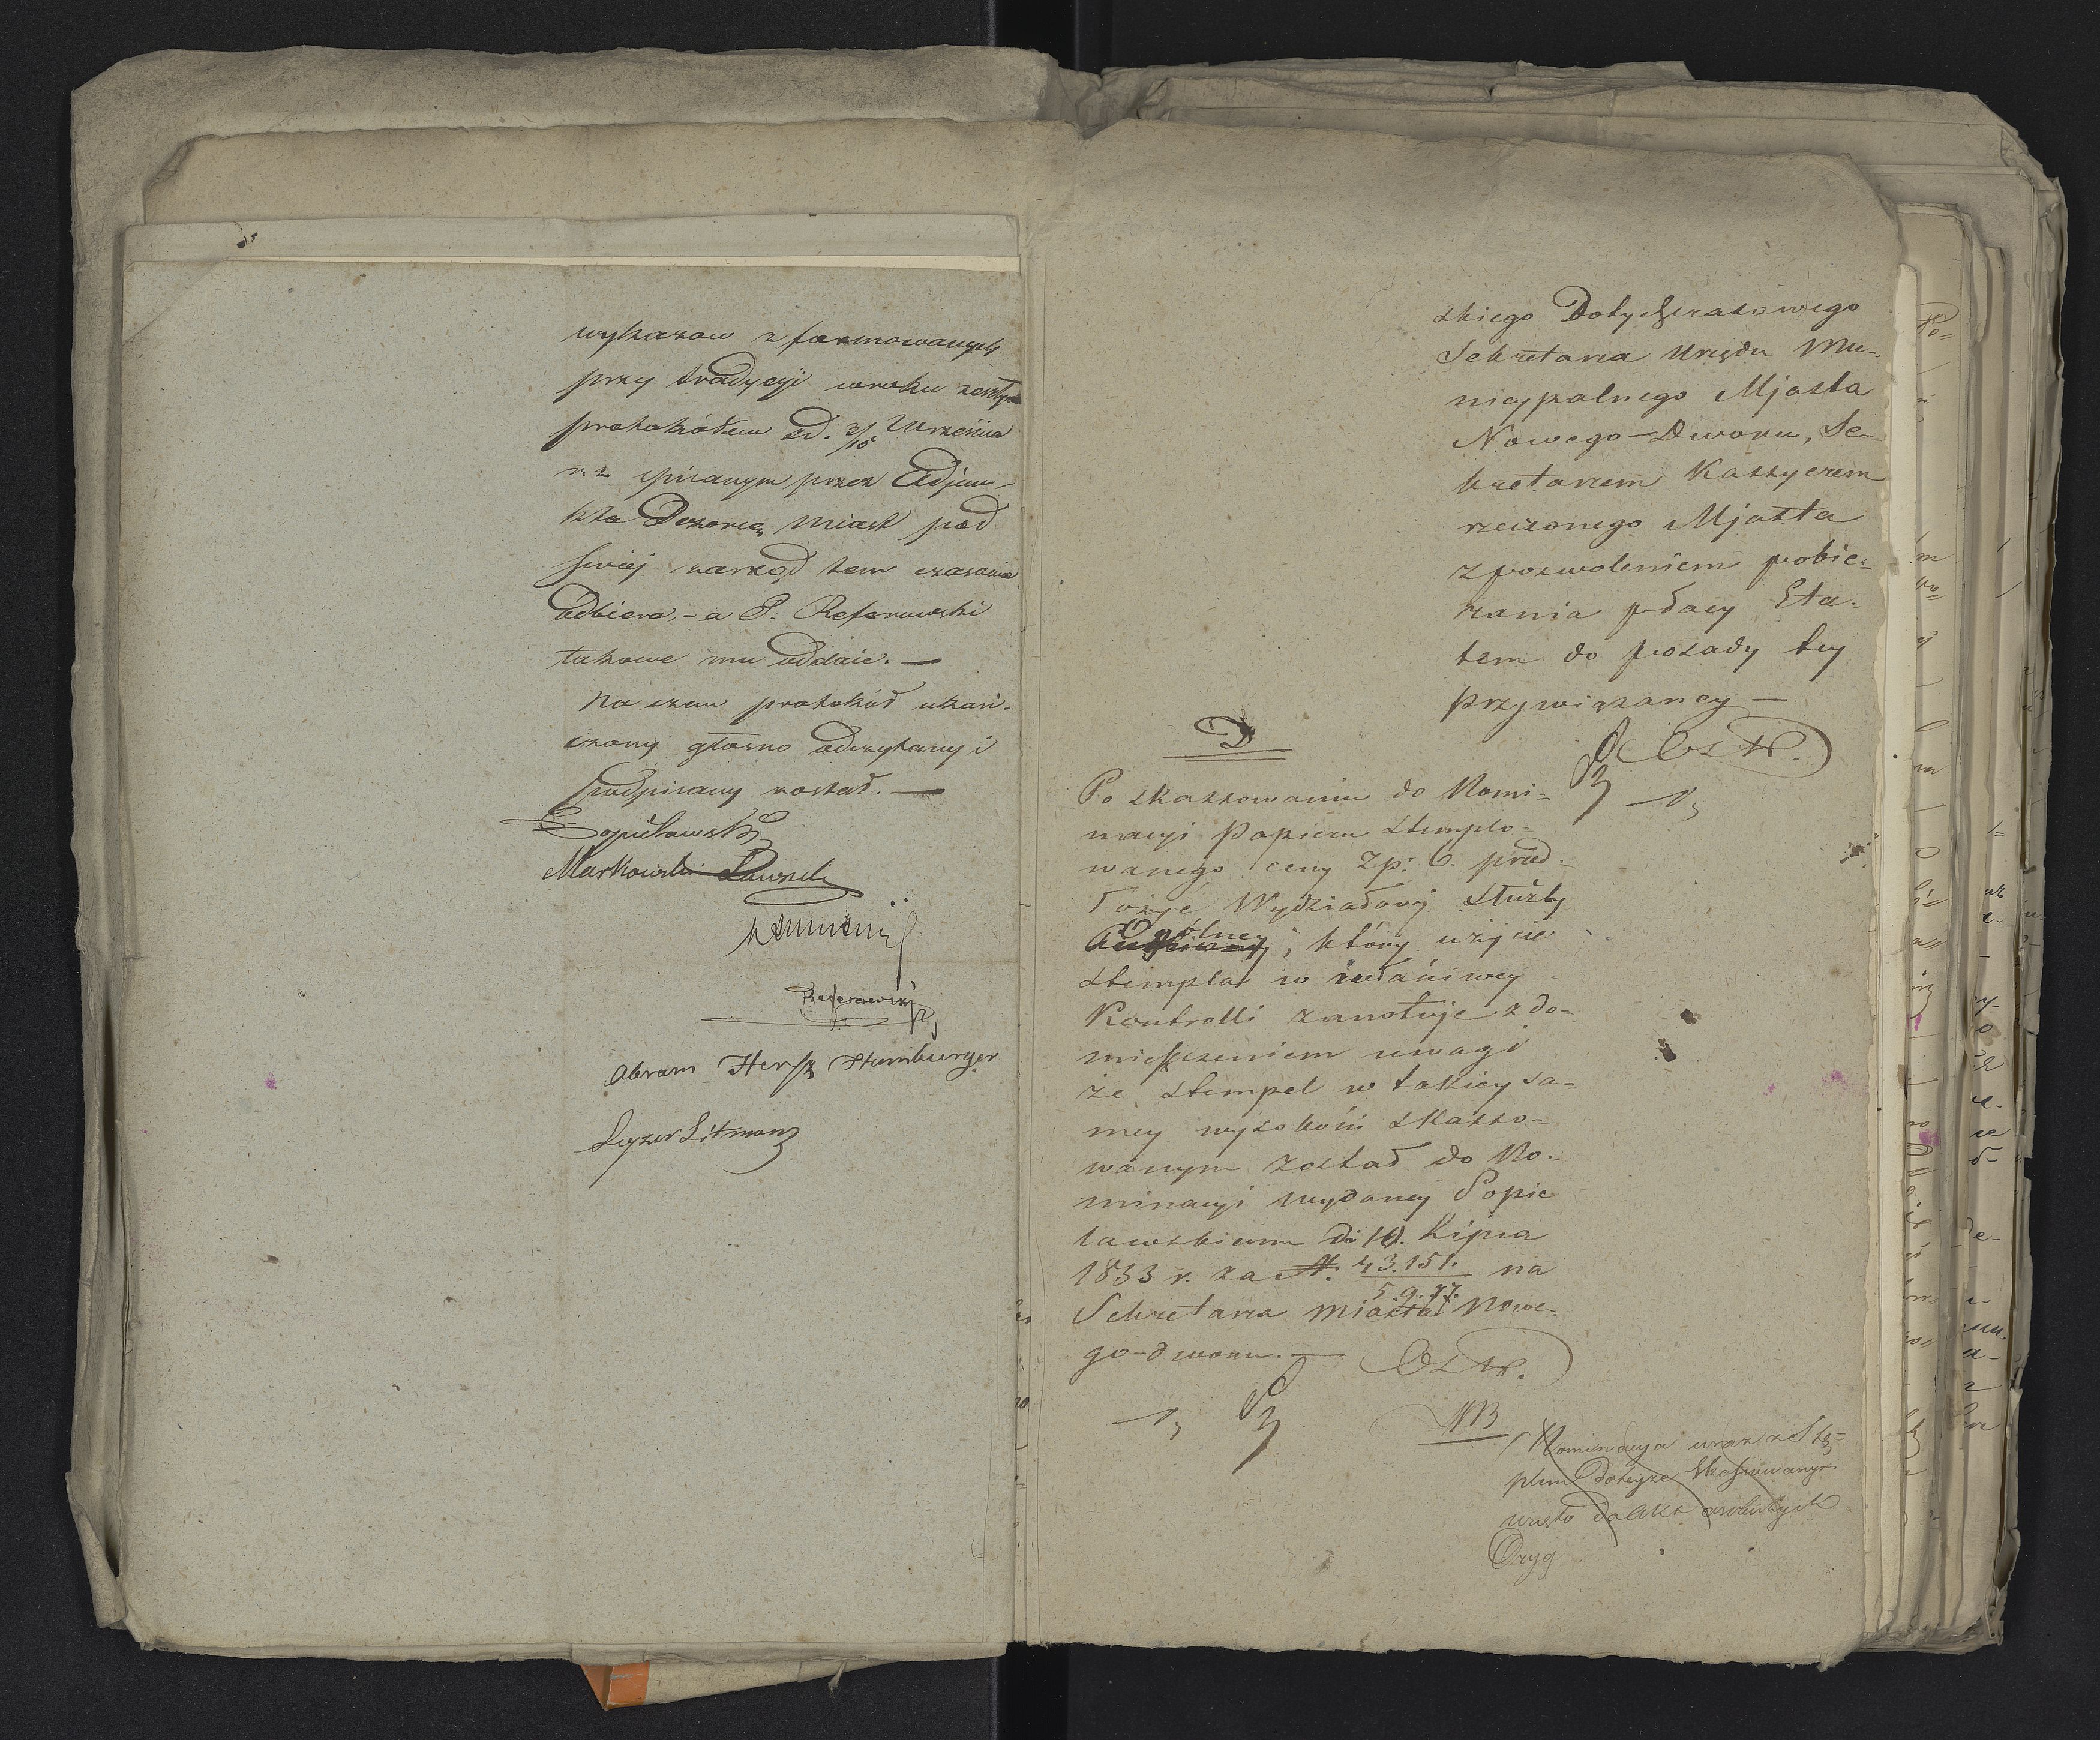 wykazow z formowanych
przy tradycyi w roku zeszłym
protokółem d. 3/15 Września
r. z. spisanym przez Adjun-
kta Dozorcę Miast pod
swój zarząd tem czasowie
odbiera, - a P. Referowski
takowe mu oddaie. —
Na czem protokół ukoń-
czony głośno odczytany i
podpisany został. —
Popieławski
Markowski Ławnik
Referowski
Abram Hersz Hamburger
Leyzer Litman
skiego Dotychczasowego
Sekretarza Urzędu Mu-
nicypalnego Mjasta
Nowego-Dworu, Se-
kretarzem Kassyerem
rzeczonego Mjasta
z pozwoleniem pobie-
rania płacy Eta-
tem do posady tey
przywiązaney —
D
Po skassowaniu do Nomi-
nacyi Papieru Stemplo-
wanego ceny Zp: 6. przed-
łożyć Wydziałowi Służby
Ogólney, który użycie
Stempla w właściwey
Kontrolli zanotuje z do-
mieszczeniem uwagi
że Stempel w takiey sa-
mey wysokości skasso-
wanym został do No-
minacyi wydaney Popie
ławskiemu d: 10. Lipca
1833 r. za N: 43.151. / 5.977. na
Sekretarza Miasta Nowe-
go-dworu. —
NB
Nominacya wraz z Stę-
plem do teyze skasowanym
wzięto do Akt osobistych